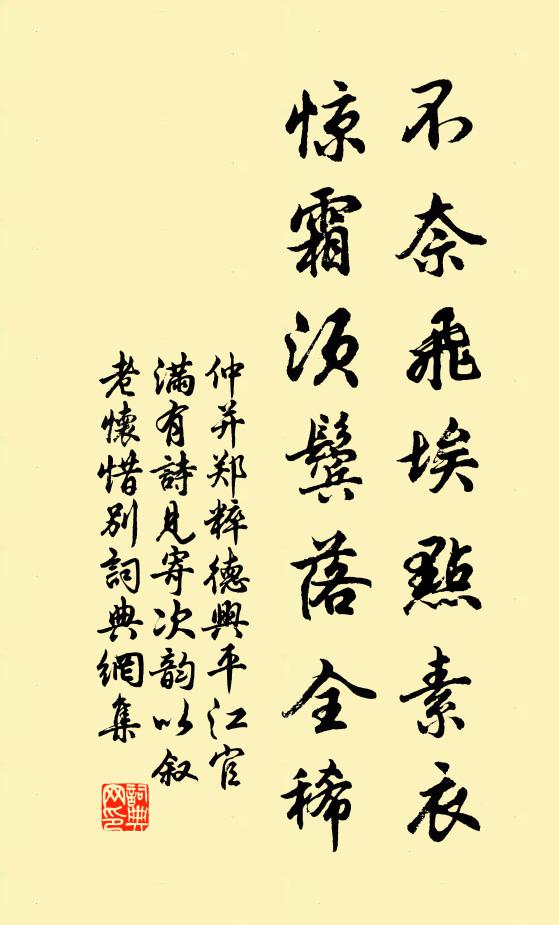 不奈飛埃點素衣
惊霜须鬓落全稀
仲并郑粹德興平江官
滿有詩見寄次韵以叙
老懷惜别詞典網集
詞典网印